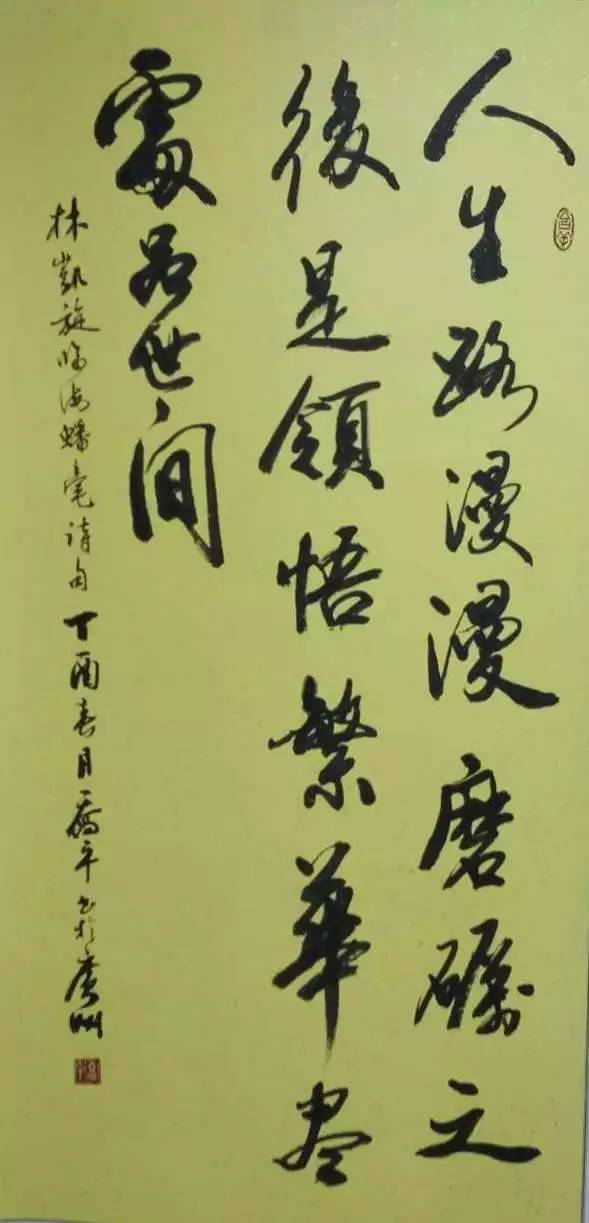 人生路漫漫磨礪之
後是領悟繁華盡
處品世间
林凱旋临海蟠毫诗句丁酉春月喬平书於廣州